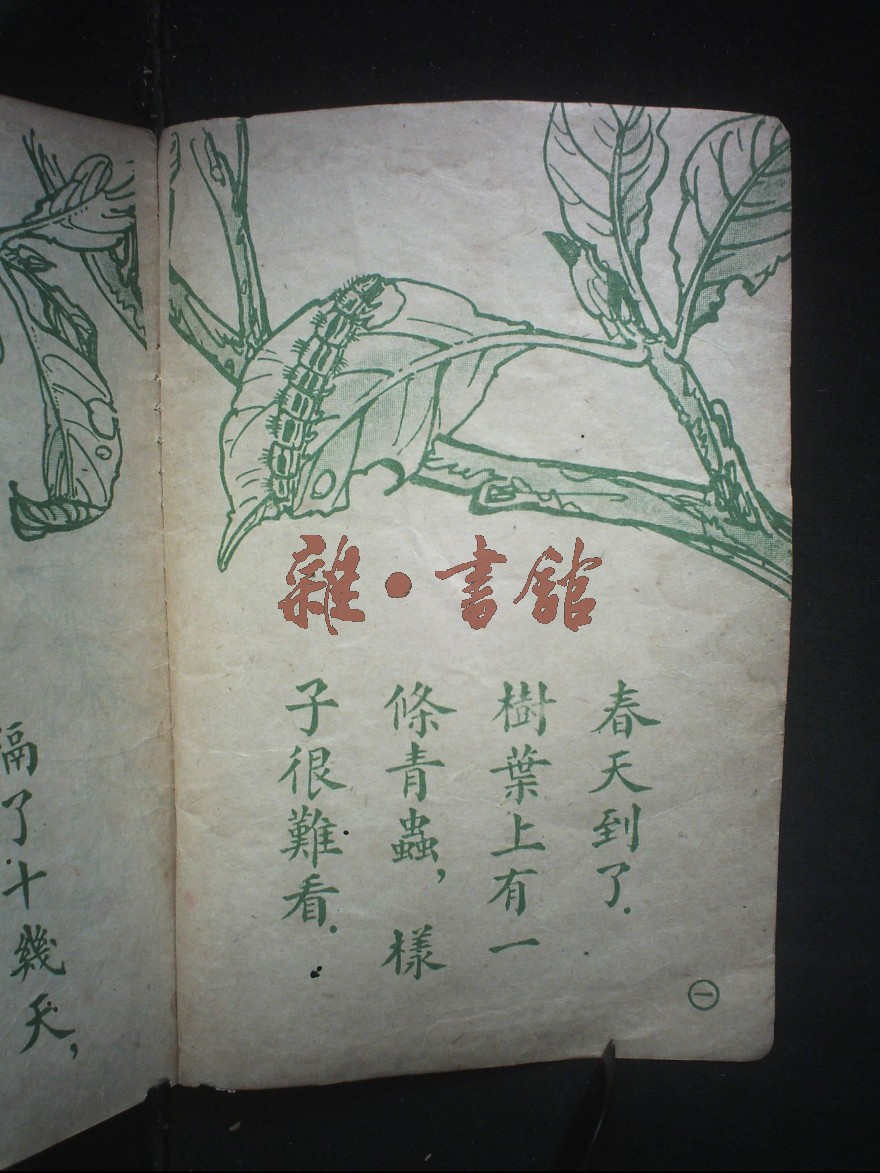 雜·書舘
春天到了.
樹葉上有一
條青蟲,樣
子很難看.
㊀
隔了十幾天,